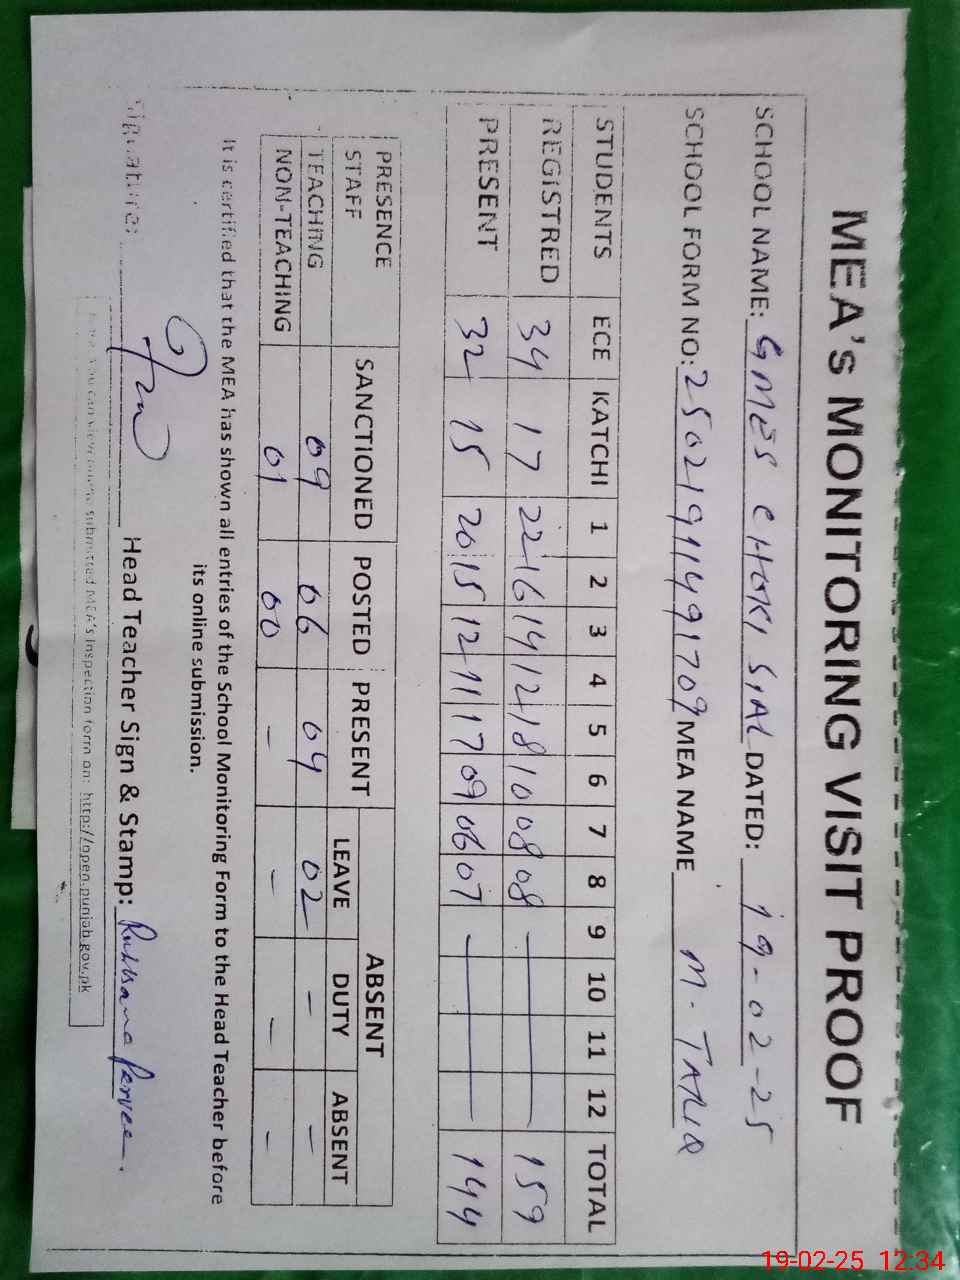 MEA's MONITORING VISIT PROOF
SCHOOL NAME: GMES CHOKI SIAL DATED: 19-02-25
SCHOOL FORM NO: 250219911491709 MEA NAME M. TARIQ
STUDENTS ECE KATCHI 1 2 3 4 5 6 7 8 9 10 11 12 TOTAL
REGISTRED 34 17 22 16 14 12 18 10 08 08 — 159
PRESENT 32 15 20 15 12 11 17 09 06 07 — 144
PRESENCE STAFF SANCTIONED POSTED PRESENT ABSENT
LEAVE DUTY ABSENT
TEACHING 09 06 04 02 - -
NON-TEACHING 01 00 - - - -
It is certified that the MEA has shown all entries of the School Monitoring Form to the Head Teacher before
its online submission.
Signature: Head Teacher Sign & Stamp: Rukhsana Parveen.
You can view submitted MEA's Inspection form on: http://open.punjab.gov.pk
19-02-25 12:34